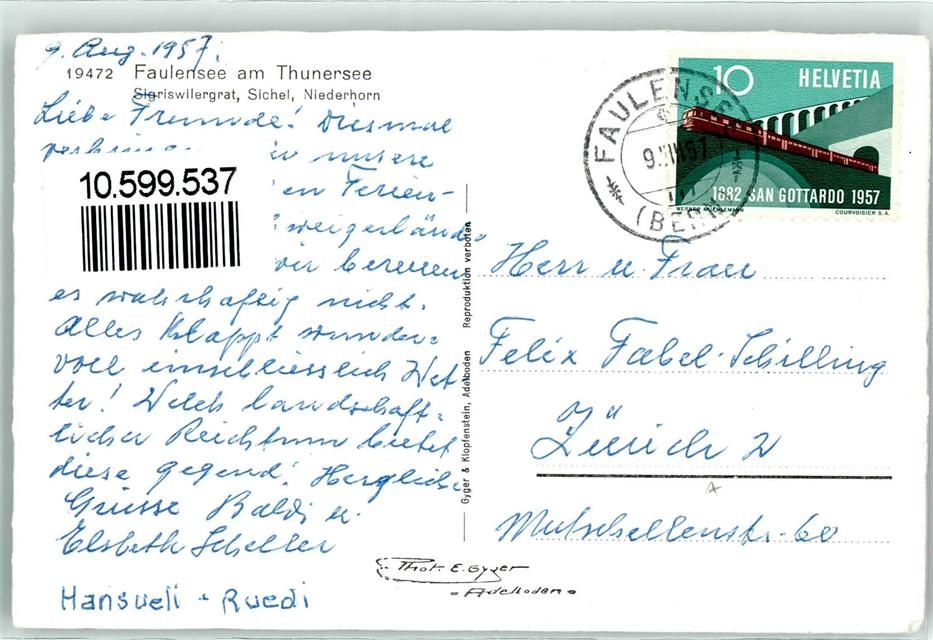 9. Aug. 1957.
19472 Faulensee am Thunersee
Sigriswilergrat, Sichel, Niederhorn
Liebe Freunde! Diesmal
unsere
en Ferien-
wir bereuen
es wahrhaftig nicht.
Alles klappt wunder-
voll einschliesslich Wet-
ter! Welch landschaft-
licher Reichtum bietet
diese Gegend! Herzliche
Grüsse Baldi u.
Elsbeth Scheller
Hansueli - Ruedi
10.599.537
Reproduktion verboten
Gyger & Klopfenstein, Adelboden
Phot. E. Gyger
- Adelboden -
10 HELVETIA
1882 SAN GOTTARDO 1957
COURVOISIER S.A.
FAULENSEE
9.VIII.57
(BERN)
Herr u. Frau
Felix Fabel-Schilling
Zürich 2
Mutschellenstr. 60